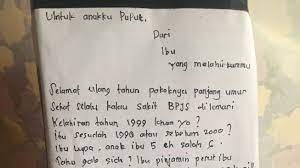 Untuk anakku Puruk.
Dari
Ibu
yang melahirkanmu
Selamat ulang tahun pokoknya panjang umur
Sehat selalu kalau sakit BPJS di lemari
Kelahiran tahun 1999 kan yo ?
itu sesudah 1998 atau sebelum 2000 ?
ibu lupa, anak ibu 5 eh salah 6.
galo sich ? Ibu pinjamin perut ibu